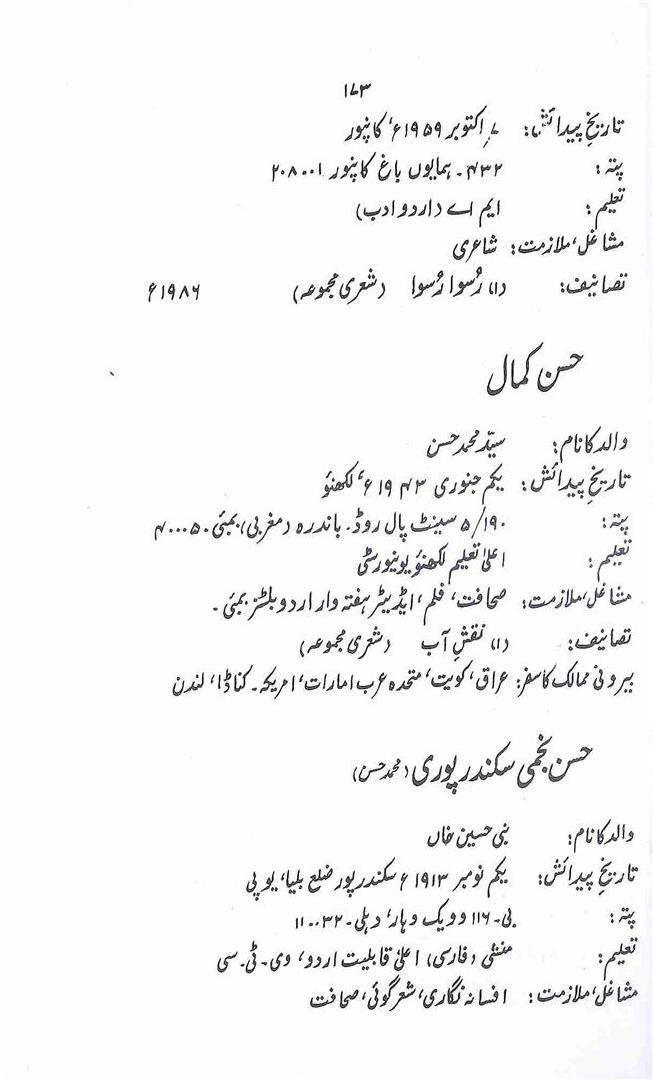 ۱۷۳
تاریخِ پیدائش: ۷ اکتوبر ۱۹۵۹ء، کانپور
پتہ: ۴۳۲۔ ہمایوں باغ کانپور ۲۰۸۰۰۱
تعلیم: ایم اے (اردو ادب)
مشاغل، ملازمت: شاعری
تصانیف: (۱) رُسوا رُسوا (شعری مجموعہ) ۱۹۸۶ء
حسن کمال
والد کا نام: سیّد محمد حسن
تاریخِ پیدائش: یکم جنوری ۱۹۴۳ء، لکھنؤ
پتہ: ۵/۱۹۰ سینٹ پال روڈ۔ باندرہ (مغربی) بمبئی ۴۰۰۰۵۰
تعلیم: اعلیٰ تعلیم لکھنؤ یونیورسٹی
مشاغل، ملازمت: صحافت، فلم، ایڈیٹر ہفتہ وار اردو بلٹز بمبئی۔
تصانیف: (۱) نقشِ آب (شعری مجموعہ)
بیرونی ممالک کا سفر: عراق، کویت، متحدہ عرب امارات، امریکہ۔ کناڈا، لندن
حسن نجمی سکندرپوری (محمد حسن)
والد کا نام: نبی حسین خاں
تاریخِ پیدائش: یکم نومبر ۱۹۱۳ء سکندرپور ضلع بلیا، یوپی
پتہ: بی۔۱۱۶ وویک وہار، دہلی۔ ۱۱۰۰۳۲
تعلیم: منشی (فارسی) اعلیٰ قابلیت اردو، وی۔ٹی۔سی
مشاغل، ملازمت: افسانہ نگاری، شعر گوئی، صحافت